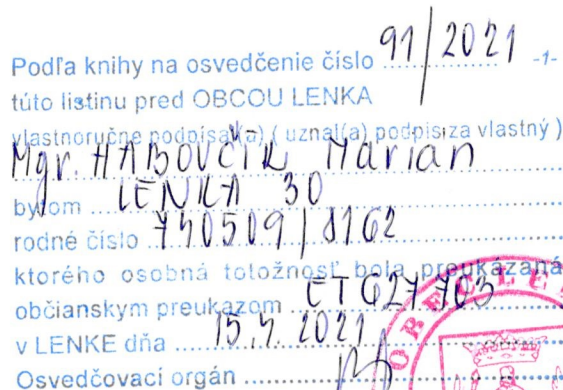 Podľa knihy na osvedčenie číslo 91/2021 -1-
túto listinu pred OBCOU LENKA
vlastnoručne podpísal(a) ( uznal(a) podpis za vlastný )
Mgr. HABOVČÍK Marian
bytom LENKA 30
rodné číslo 740509/8162
ktorého osobná totožnosť bola preukázaná
občianskym preukazom
v LENKE dňa 15.4.2021
Osvedčovací orgán
OBEC LE